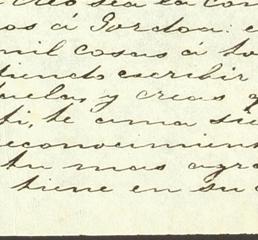 creo sea la con
os á Gordoa: e
mil cosas á to
tiendo escribir
uelas, y creas q
ti, te ama su
reconocimient
tu mas agra
tiene en su